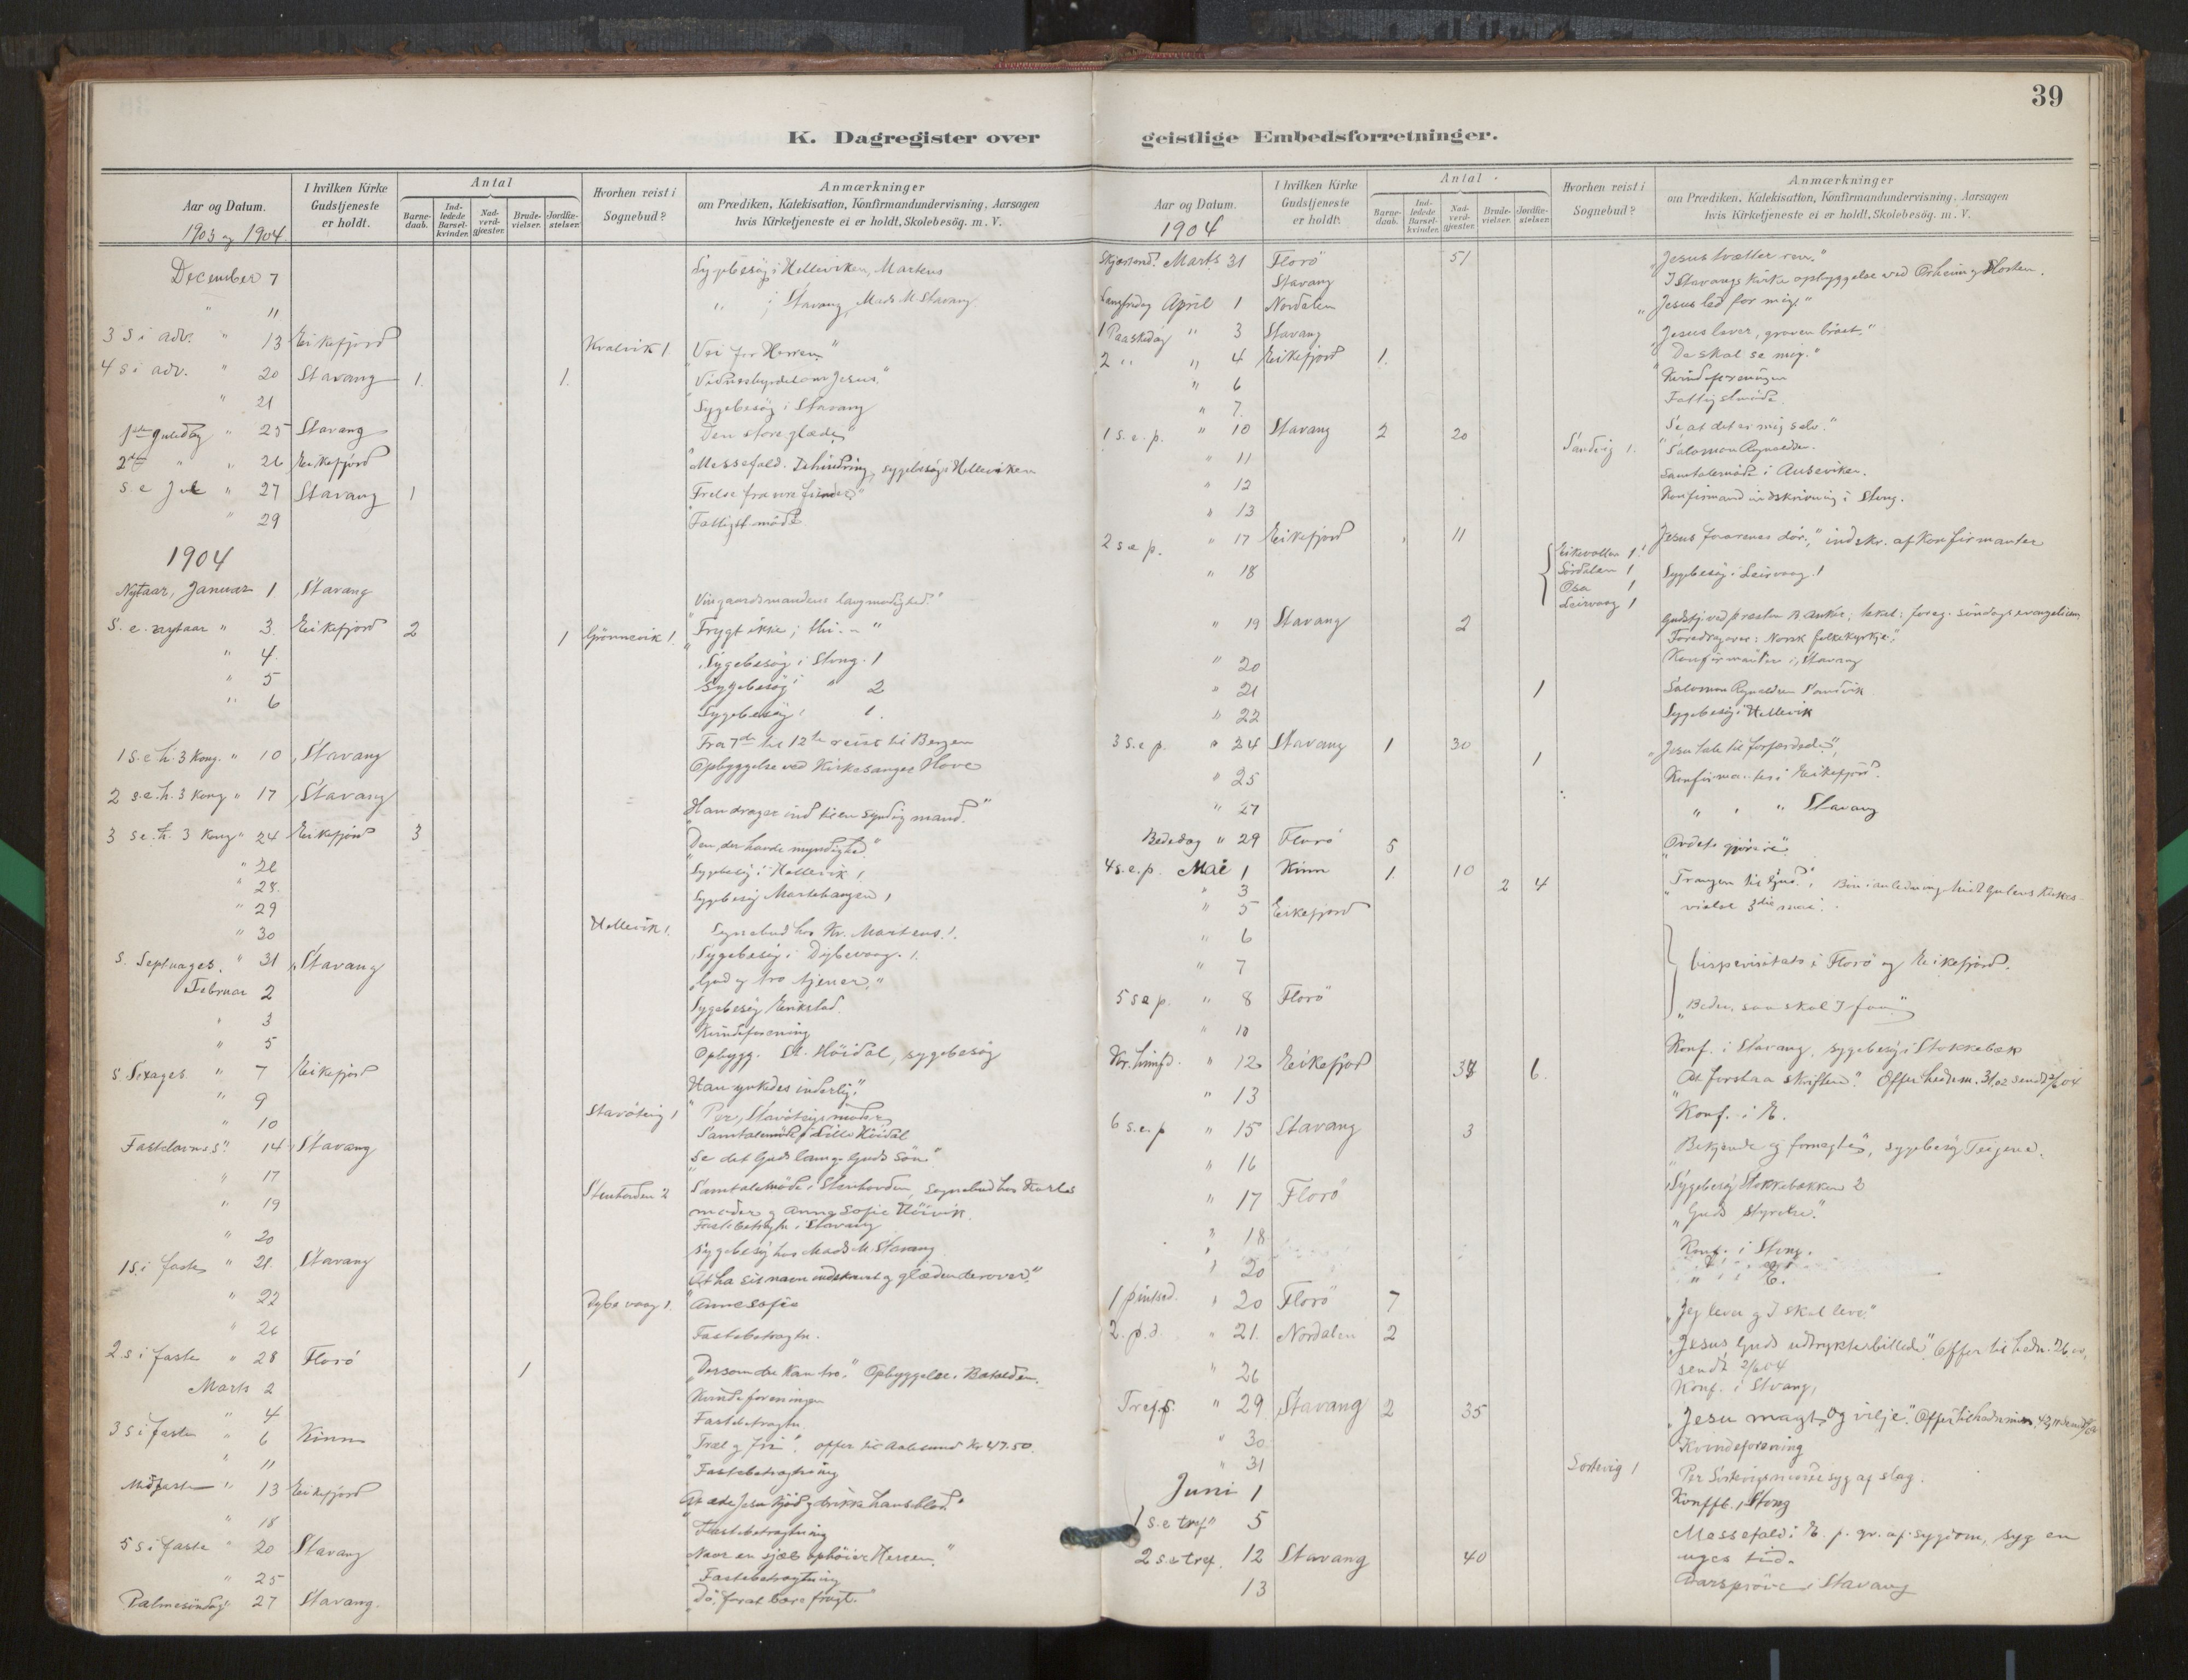 39
K. Dagregister over geistlige Embedsforretninger.
Aar og Datum. I hvilken Kirke Gudstjeneste er holdt. Antal Barnedaab. Indledede Barselkvinder. Nadverdgjæster. Brudevielser. Jordfæstelser. Hvorhen reist i Sognebud? Anmærkninger om Prædiken, Katekisation, Konfirmandundervisning, Aarsagen hvis Kirketjeneste ei er holdt, Skolebesøg. m. V.
1903 og 1904.
December 7 Sygebesøg i Helleviken, Martens
" 11 " i Stavang, Mads M. Stavang.
3 S i adv. " 13 Eikefjord Kvalvik 1 "Vei for Herren"
4 s i adv. " 20 Stavang 1. 1. "Vidnesbyrdet om Jesus."
" 21 Sygebesøg i Stavang
1ste juledag " 25 Stavang "Den store glæde"
2den " " 26 Eikefjord Messefald. Zehindring, sygebesøg i Helleviken
s e Jul " 27 Stavang 1 "Frelse fra vore fiender"
" 29 Fattigst. møde
1904
Nytaar, Januar 1 Stavang "Vingaardsmandens langmodighed."
S. e. nytaar " 3. Eikefjord 2 1 Grønnevik 1. "Frygt ikke; thi - "
" 4. Sygebesøg i Stong. 1
" 5 Sygebesøg " 2
" 6 Sygebesøg 1.
Fra 7de til 12te reist til Bergen
1 s. e h. 3 Kong. " 10 Stavang Opbyggelse ved Kirkesanger Hove
2 s. e. h. 3 Kong " 17 Stavang "Han drager ind til en syndig mand."
3 s e. h. 3 Kong " 24 Eikefjord 3 "Den, der havde myndighed"
" 26 Sygebesøg i Hellevik 1
" 28. Sygebesøg Martehaugen 1
" 29
" 30 Hellevik 1. Sognebud hos Kr. Martens 1.
S. Septuages. " 31 Stavang Sygebesøg i Dybevaag. 1.
Februar 2 "God og tro tjener."
" 3 Sygebesøg Erikstad.
" 5 Kvindeforening
Opbygg. St. Høidal, sygebesøg
S. Sexages " 7 Eikefjord "Han ynkedes inderlig."
" 9 Stavøteig 1 Per, Stavøteigs moder
" 10 Samtalemøde i Lille Høidal
Fastelavns S. " 14 Stavang "Se det Guds lam og Guds søn"
" 17 Stenhovden 2 Samtalemøde i Stenhovden, Sognebud hos Karles
" 19 moder og Anna Sofie Høivik.
Fastebetragtn. i Stavang
" 20 Sygebesøg hos Mads M. Stavang
1 S. i faste " 21 Stavang "At ha sit navn indskrevet og glæden derover."
" 22 Dybevaag 1. Anne Sofie
" 26 Fastebetragtn.
2 s i faste " 28 Florø 1 "Dersom du kan tro." Opbyggelse. Batalden.
Marts 2 Kvindeforeningen
" 4 Fastebetragtn.
3 s i faste " 6 Kinn "Træl og fri". offer til Aalesund Kr 47.50.
" 11 Fastebetragtning
Midfaste " 13 Eikefjord "At æde Jesu kjød og drikke hans blod."
" 18 Fastebetragtning
5 s i faste " 20 Stavang "Naar en sjæl ophøier Herren."
" 25 Fastebetragtning
Palmesøndag " 27 Stavang. "Dø, forat bære frugt."
Aar og Datum. I hvilken Kirke Gudstjeneste er holdt. Antal. Barnedaab. Indledede Barselkvinder. Nadverdgjæster. Brudevielser. Jordfæstelser. Hvorhen reist i Sognebud? Anmærkninger om Prædiken, Katekisation, Konfirmandundervisning, Aarsagen hvis Kirketjeneste ei er holdt, Skolebesøg. m. V.
1904
Skjærtorsd. Marts 31 Florø 51 "Jesus tvætter ren."
Stavang I Stavangs kirke opbyggelse ved Orheim og Hosten.
Langfredag April 1 Nordalen "Jesus led for mig."
1 Paaskedag " 3 Stavang "Jesus lever, graven brast."
2 " " 4 Eikefjord 1. "De skal se mig."
" 6 Kvindeforeningen
" 7. Fattigst. møde.
1 s. e. p. " 10 Stavang 2 20 "Se at det er mig selv."
" 11 Sandvig 1. Salomon Rognaldsen.
" 12 Samtalemøde i Auseviken.
" 13 Konfirmand indskrivning i Stong.
2 s e p. " 17 Eikefjord 11 "Jesus faarenes dør", indskr. af Konfirmanter
" 18 Eikevollen 1. Sørdalen 1 Osa 1 Leirvaag 1 Sygebesøg i Leirvaag. 1
" 19 Stavang 2 Gudstj. ved presten B. Anker; tekst: foreg. søndags evangelium
Foredrag over: Norsk folkekyrkje.
" 20 Konfirmanter i Stavang
" 21 1 Salomon Rognaldsen Sandvik
" 22 Sygebesøg i Hellevik
3 s. e p. " 24 Stavang 1 30 "Jesu tale til forfærdede",
" 25 1 Konfirmanter i Eikefjord.
" 27 " " " Stavang
Bededag " 29 Florø 5 "Ordets gjørere".
4 s. e. p. Mai 1 Kinn 1. 10 "Trangen til Gud."
" 3 2 4
" 5 Eikefjord vielse 3die mai.
" 6
" 7 bispevisitats i Florø og Eikefjord.
5 s e p. " 8 Florø "Beder, saa skal I faa"
" 10 Konf. i Stavang, sygebesøg i Stokkebæk
Kr. himfd. " 12 Eikefjord 38 6. "At forstaa skriften". Offer hedn.m. 31,02 sendt 2/6 04
" 13 Konf. i E.
6 s. e. p " 15 Stavang 3 "Bekjende og fornegte", sygebesøg Teigene.
" 16 Sygebesøg Stokkebækken 2
" 17 Florø "Guds styrelse."
" 18 Konf. i Stong.
" 20 " " E.
1 pintsed. " 20 Florø 7 "Jeg lever og I skal leve."
2. p. d. " 21. Nordalen 2 "Jesus Guds udtrykte billede". Offer til hedn.
" 26 sendt 2/6 04
Konf. i Stvang,
Tref.s. " 29 Stavang 2 35 "Jesu magt og vilje".
" 30 Kvindeforening
" 31 Sortevig 1 Per Sortevigs moder syg af slag.
Juni 1 Konff. i Stong
1 s. e tref " 5 Messefald i E. p. gr. af sygdom, syg en
uges tid.
2 s. e tref. 12 Stavang 40
13 Aarsprøve i Stavang